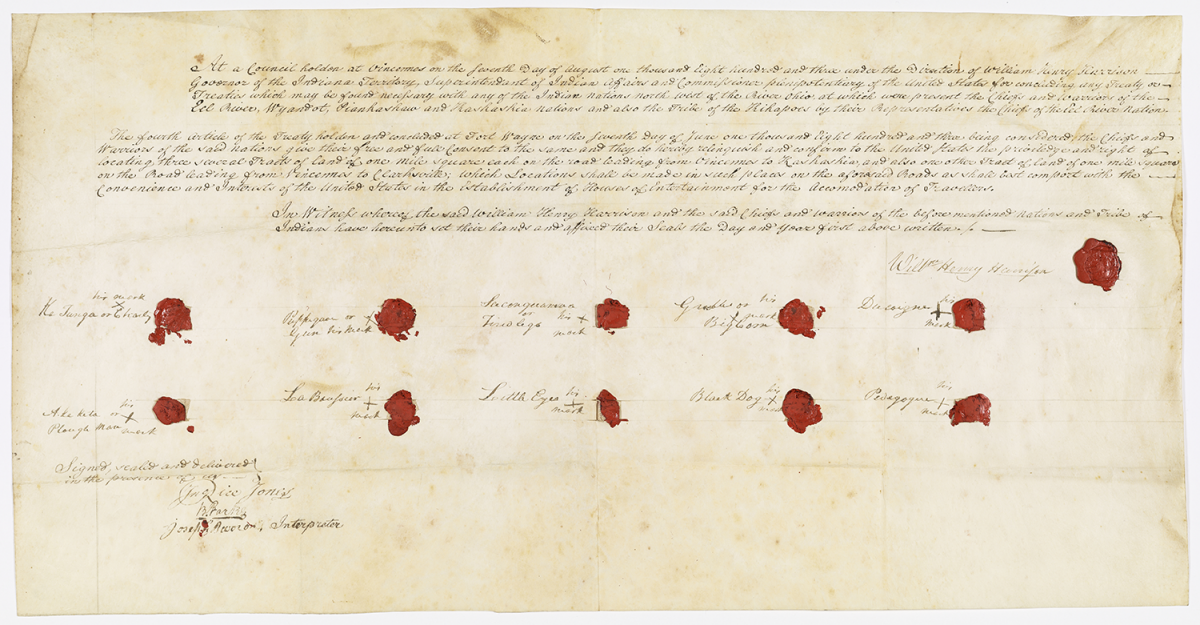 At a Council holden at Vincennes on the Seventh Day of August one thousand Eight hundred and three under the Direction of William Henry Harrison
Governor of the Indiana Territory, Superintendent of Indian Affairs and Commissioner plenipotentiary of the United States for concluding any Treaty or
Treaties which may be found necessary with any of the Indian Nations north west of the River Ohio, at which were present the Chiefs and Warriors of the
Eel River, Wyandot, Piankashaw and Kaskaskia nations and also the Tribe of the Kikapoes by their Representatives the Chiefs of the Eel River Nation
The fourth Article of the Treaty holden and concluded at Fort Wayne on the Seventh Day of June one thousand Eight hundred and three being considered, the Chiefs and
Warriors of the said nations give their free and full Consent to the same and they do hereby relinquish and confirm to the United States the priviledge and right of
locating three several Tracts of land of one mile square each on the road leading from Vincennes to Kaskaskia, and also one other Tract of land of one mile square
on the Road leading from Vincennes to Clarksville; which Locations shall be made in such places on the aforesaid Roads as shall best comport with the
Convenience and Interests of the United States in the Establishment of Houses of Entertainment for the Accomodation of Travellers.
In Witness whereof the said William Henry Harrison and the said Chiefs and Warriors of the before mentioned Nations and Tribe of
Indians have hereunto set their hands and affixed their Seals the Day and Year first above written.
Will^m Henry Harrison
Ka Tunga or Charly his mark
Puppequor or Gun his mark
Saconquaneva or Tired legs his mark
Grubb or Big Corn his mark
Ducoigne his mark
Akaketa or Plough Man his mark
La Boussier his mark
Little Eyes his mark
Black Dog his mark
Pedagogue his mark
Signed, sealed and delivered
in the presence of us
Jn^o Rice Jones
B. Parke
Joseph Interpreter